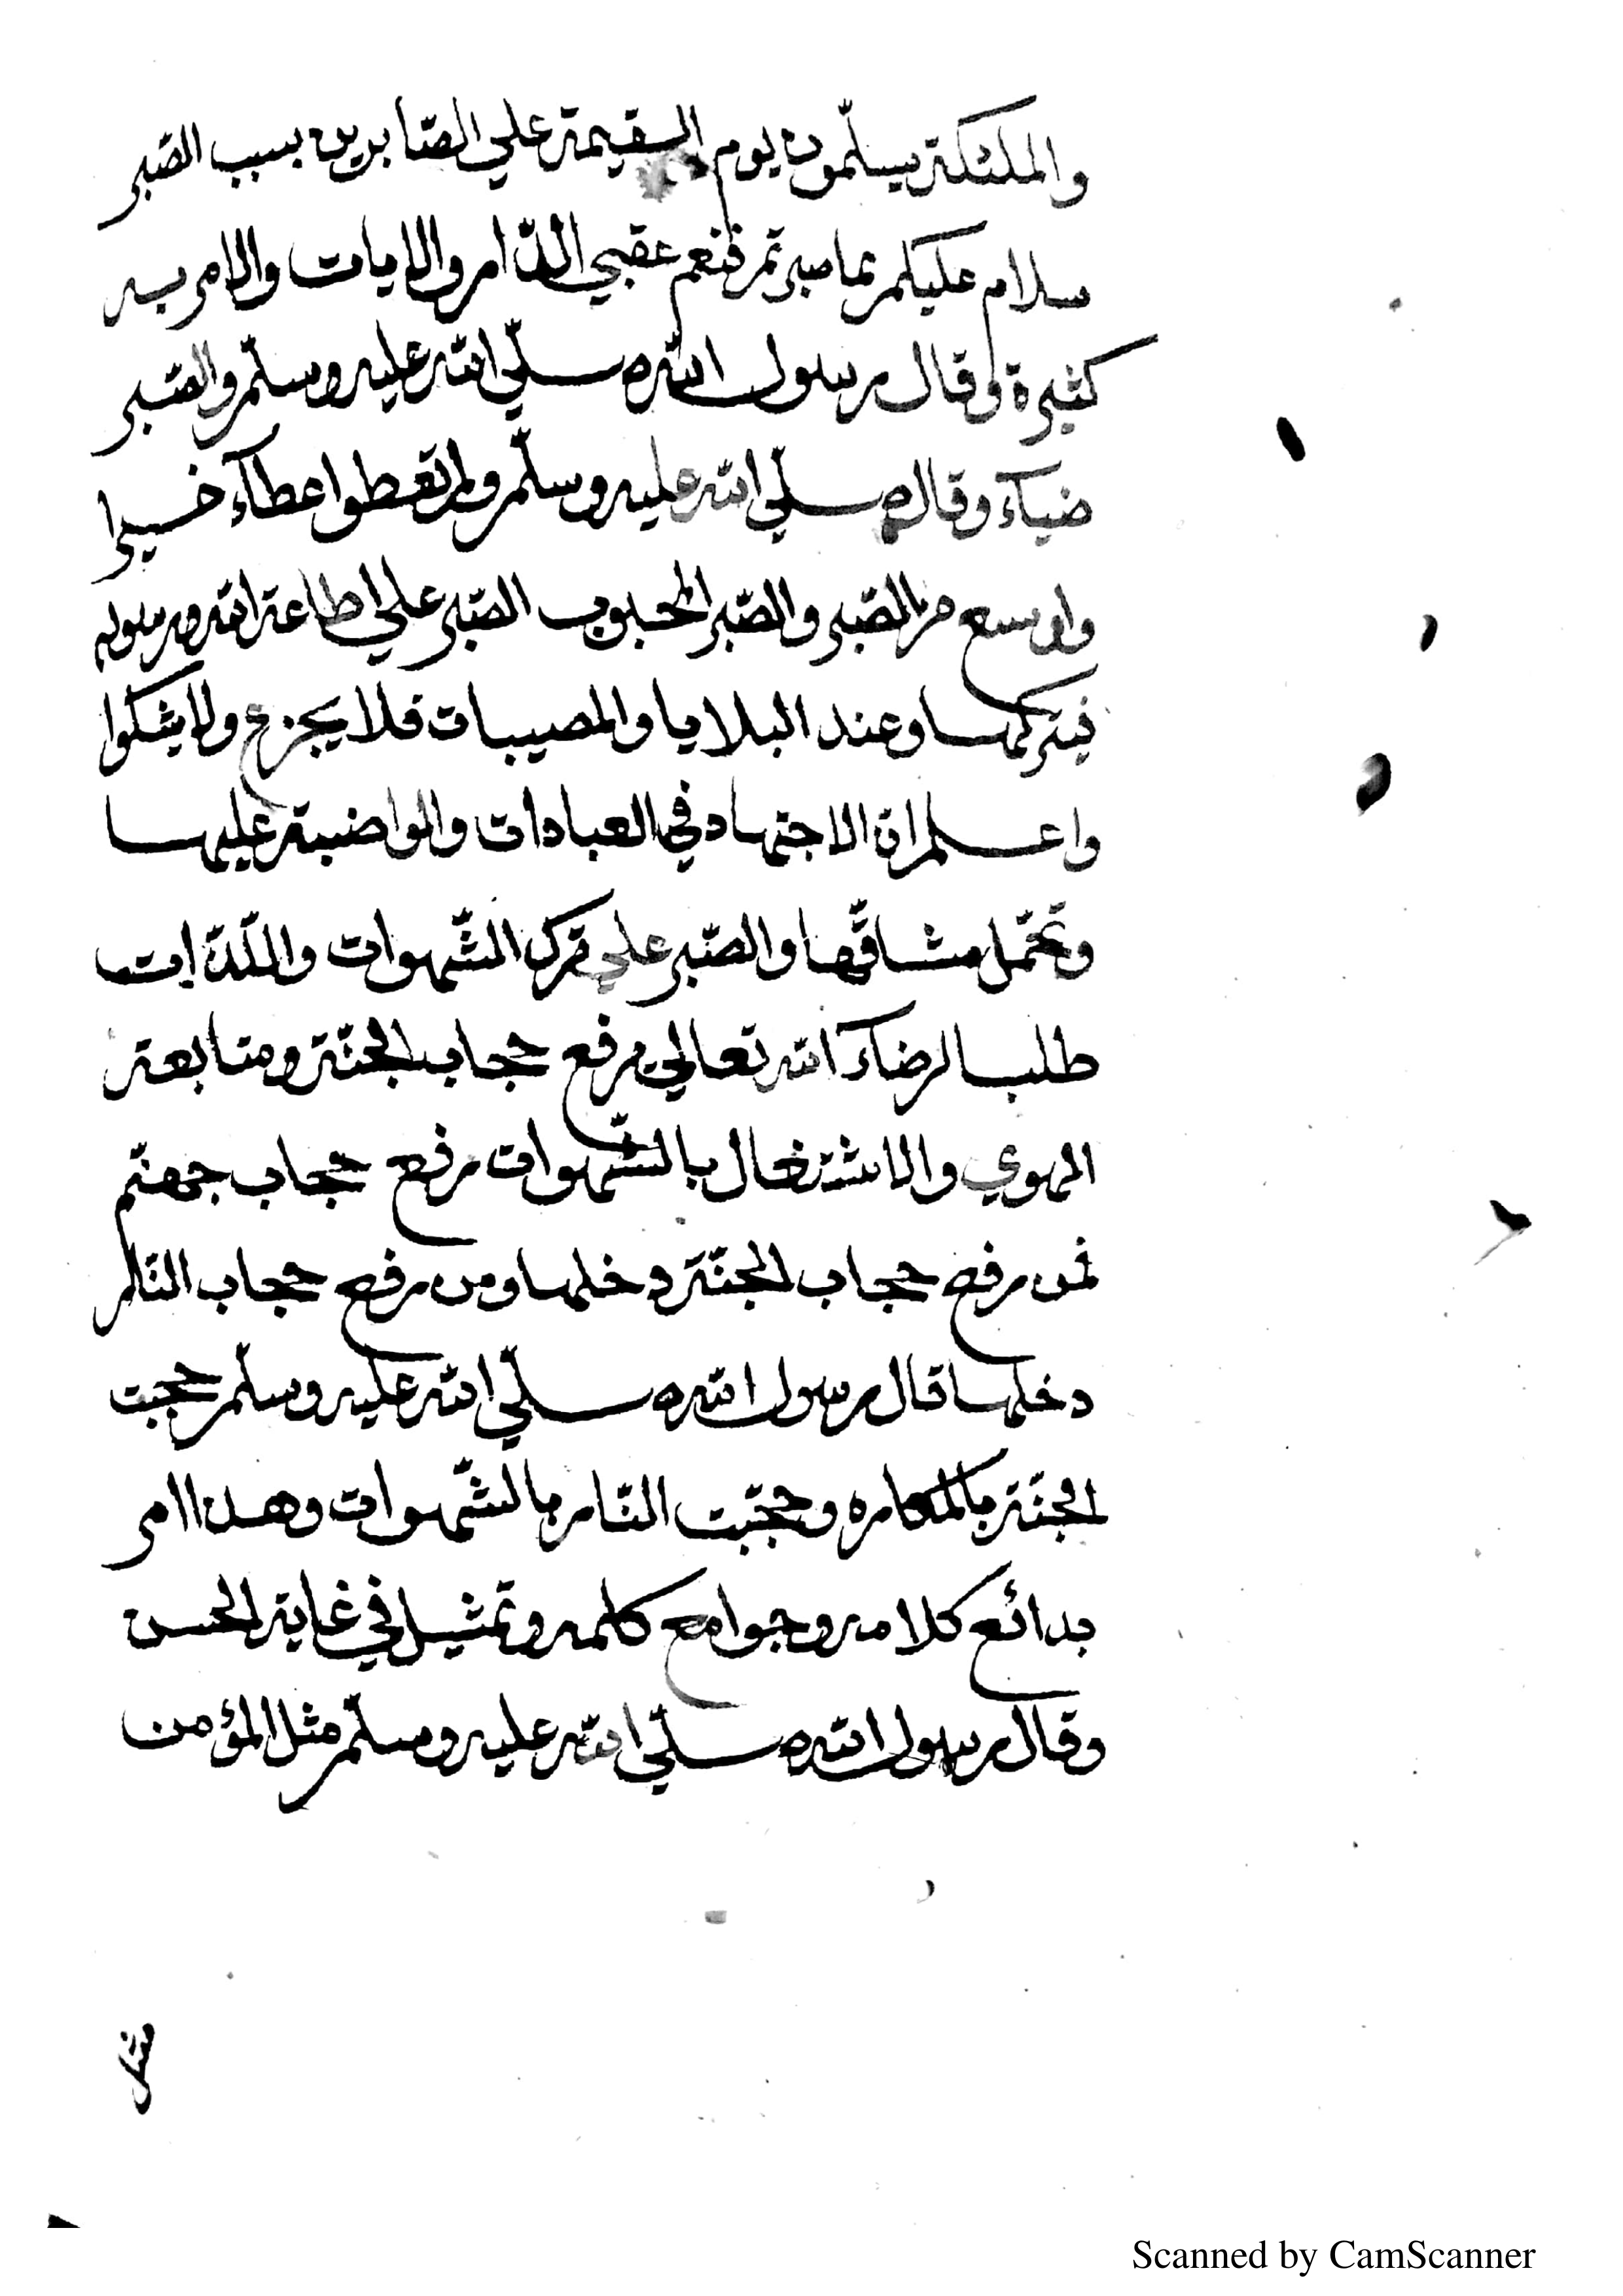 والملئكة يسلّمون يوم القيمة علي الصّابرين بسبب الصّبر
سلام عليكم بما صبرتم فنعم عقبي الدّار والايات والامر به
كثيرة وقال رسول الله صلّي الله عليه وسلّم والصّبر
ضياء وقال صلّي الله عليه وسلّم ولم تعطوا عطاء خيرا
واوسع من الصّبر والصّبر المحبوب الصّبر علي اطاعة الله ورسوله
فيتركها وعند البلايا والمصيبات فلا يجزع ولا يشكوا
واعلم ان الاجتهاد في العبادات والواضبة عليها
وتحمّل مشاقّها والصّبر علي ترك الشّهوات واللّذّات
طلبا لرضاء الله تعالي رفع حجاب الجنّة ومتابعة
الهوي والاشتغال بالشّهوات رفع حجاب جهنّم
فمن رفع حجاب الجنّة دخلها ومن رفع حجاب النّار
دخلها قال رسول الله صلّي الله عليه وسلّم حجبت
الجنّة بالمكاره وحجبت النّار بالشّهوات وهذا امر
بدائع كلامه وجوامع كلمه وتمثيل في غاية الحسن
وقال رسول الله صلّي الله عليه وسلّم مثل المؤمن
Scanned by CamScanner